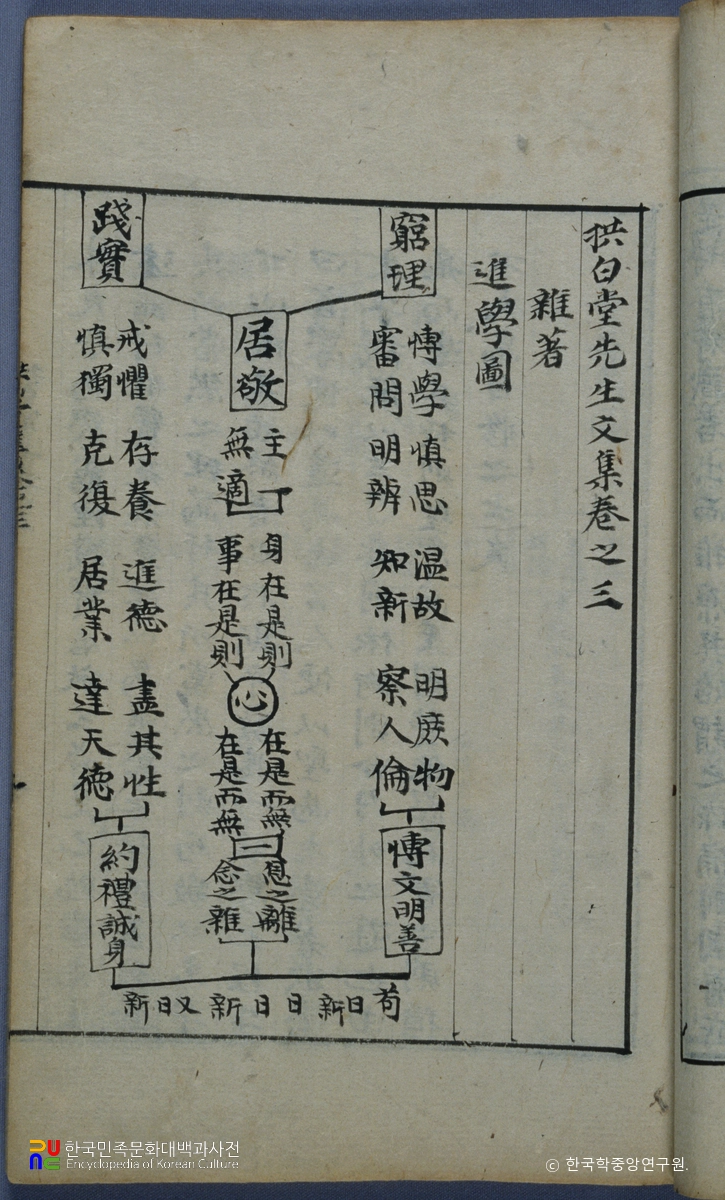 拱白堂先生文集卷之三
雜著
進學圖
窮理
博學 慎思 溫故 明庶物
審問 明辨 知新 察人倫
博文明善
居敬
主一
無適
身在是則
事在是則
心
在是而無一息之離
在是而無一念之雜
踐實
戒懼 存養 進德 盡其性
慎獨 克復 居業 達天德
約禮誠身
苟日新日日新又日新
한국민족문화대백과사전
Encyclopedia of Korean Culture
© 한국학중앙연구원.